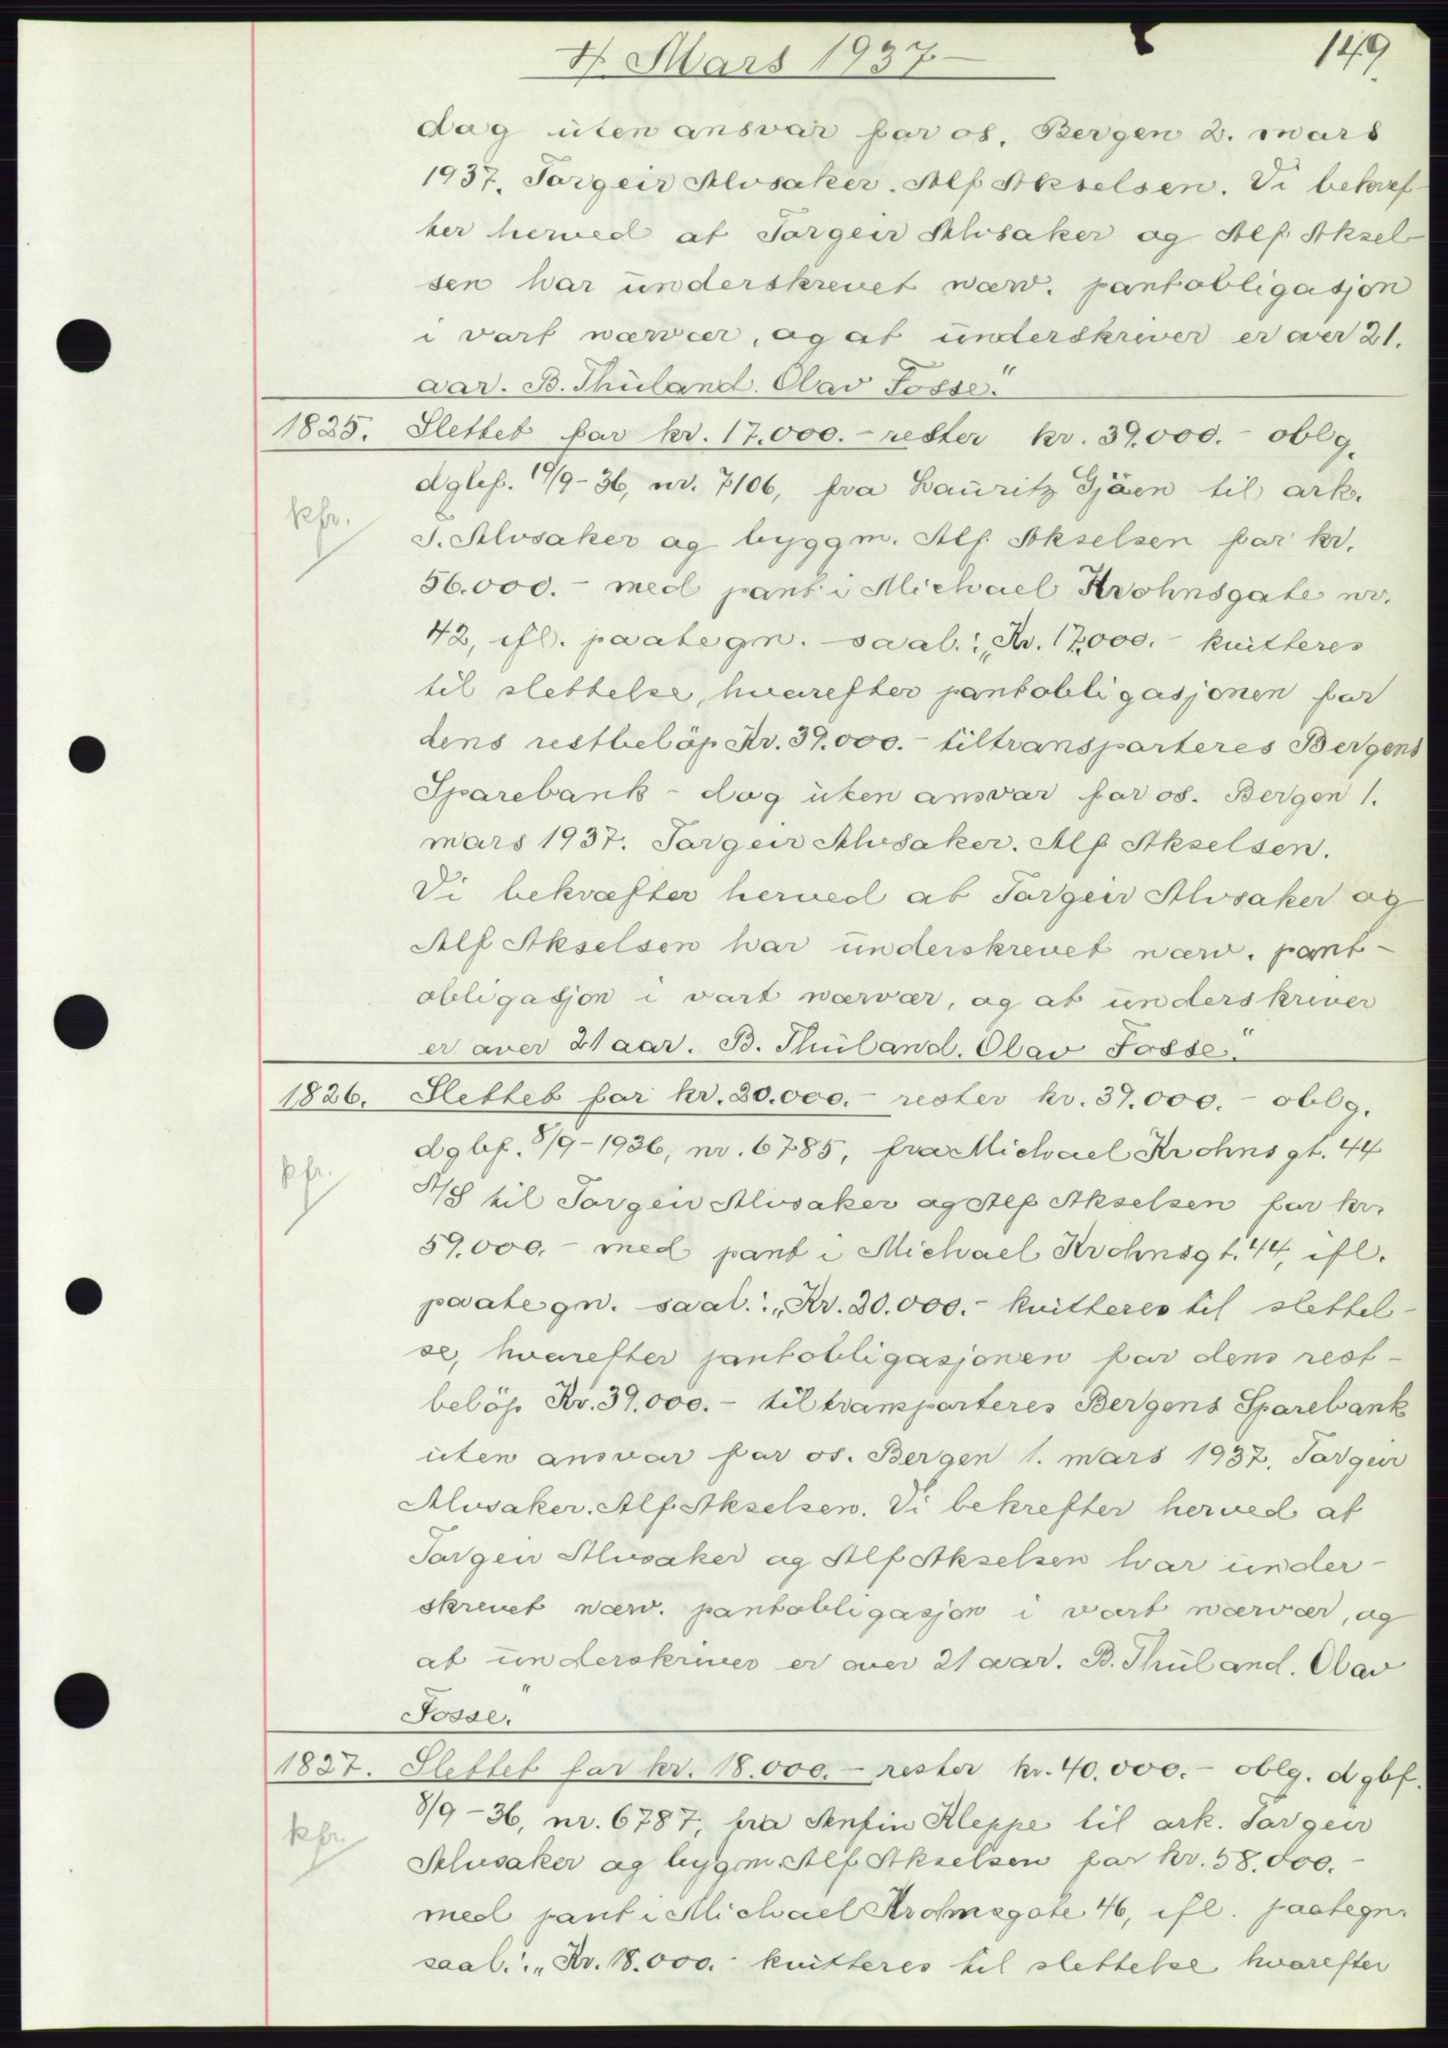 4 Mars 1937 —
149.
dog uten ansvar for os. Bergen 2. mars
1937. Torgeir Alvsaker. Alf Akselsen. Vi bekref-
ter herved at Torgeir Alvsaker og Alf Aksel-
sen har underskrevet nærv. pantobligasjon
i vort nærvær, og at underskriver er over 21.
aar. B. Thuland. Olav Fosse."
1825. Slettet for kr. 17.000.- rester kr. 39.000.- oblg.
dglf. 19/9-36, nr. 7106, fra Lauritz Gjäen til ark.
kfr.
T. Alvsaker og byggm. Alf Akselsen for kr.
56.000.- med pant i Michael Krohnsgate nr.
42, ifl. paategn. saal.: „Kr. 17.000.- kvitteres
til slettelse, hvorefter pantobligasjonen for
dens restbeløp Kr. 39.000.- tiltransporteres Bergens
Sparebank - dog uten ansvar for os. Bergen 1.
mars 1937. Torgeir Alvsaker. Alf Akselsen.
Vi bekræfter herved at Torgeir Alvsaker og
Alf Akselsen har underskrevet nærv. pant-
obligasjon i vort nærvær, og at underskriver
er over 21 aar. B. Thuland. Olav Fosse."
1826. Slettet for kr. 20.000.- rester kr. 39.000.- oblg.
dgbf. 8/9-1936, nr. 6785, fra Michael Krohnsgt. 44
kfr.
A/S til Torgeir Alvsaker og Alf Akselsen for kr.
59.000.- med pant i Michael Krohnsgt. 44, ifl.
paategn. saal.: „Kr. 20.000.- kvitteres til slettel-
se, hvorefter pantobligasjonen for dens rest-
beløp Kr. 39.000.- tiltransporteres Bergens Sparebank
uten ansvar for os. Bergen 1. mars 1937. Torgeir
Alvsaker. Alf Akselsen. Vi bekrefter herved at
Torgeir Alvsaker og Alf Akselsen har under-
skrevet nærv. pantobligasjon i vort nærvær, og
at underskriver er over 21 aar. B. Thuland. Olav
Fosse."
1827. Slettet for kr. 18.000.- rester kr. 40.000.- oblg. dgbf.
8/9-36, nr. 6787, fra Arnfin Kleppe til ark. Torgeir
kfr.
Alvsaker og bygm. Alf Akselsen for kr. 58.000.-
med pant i Michael Krohnsgate 46, ifl. paategn.
saal.: „Kr. 18.000.- kvitteres til slettelse hvorefter